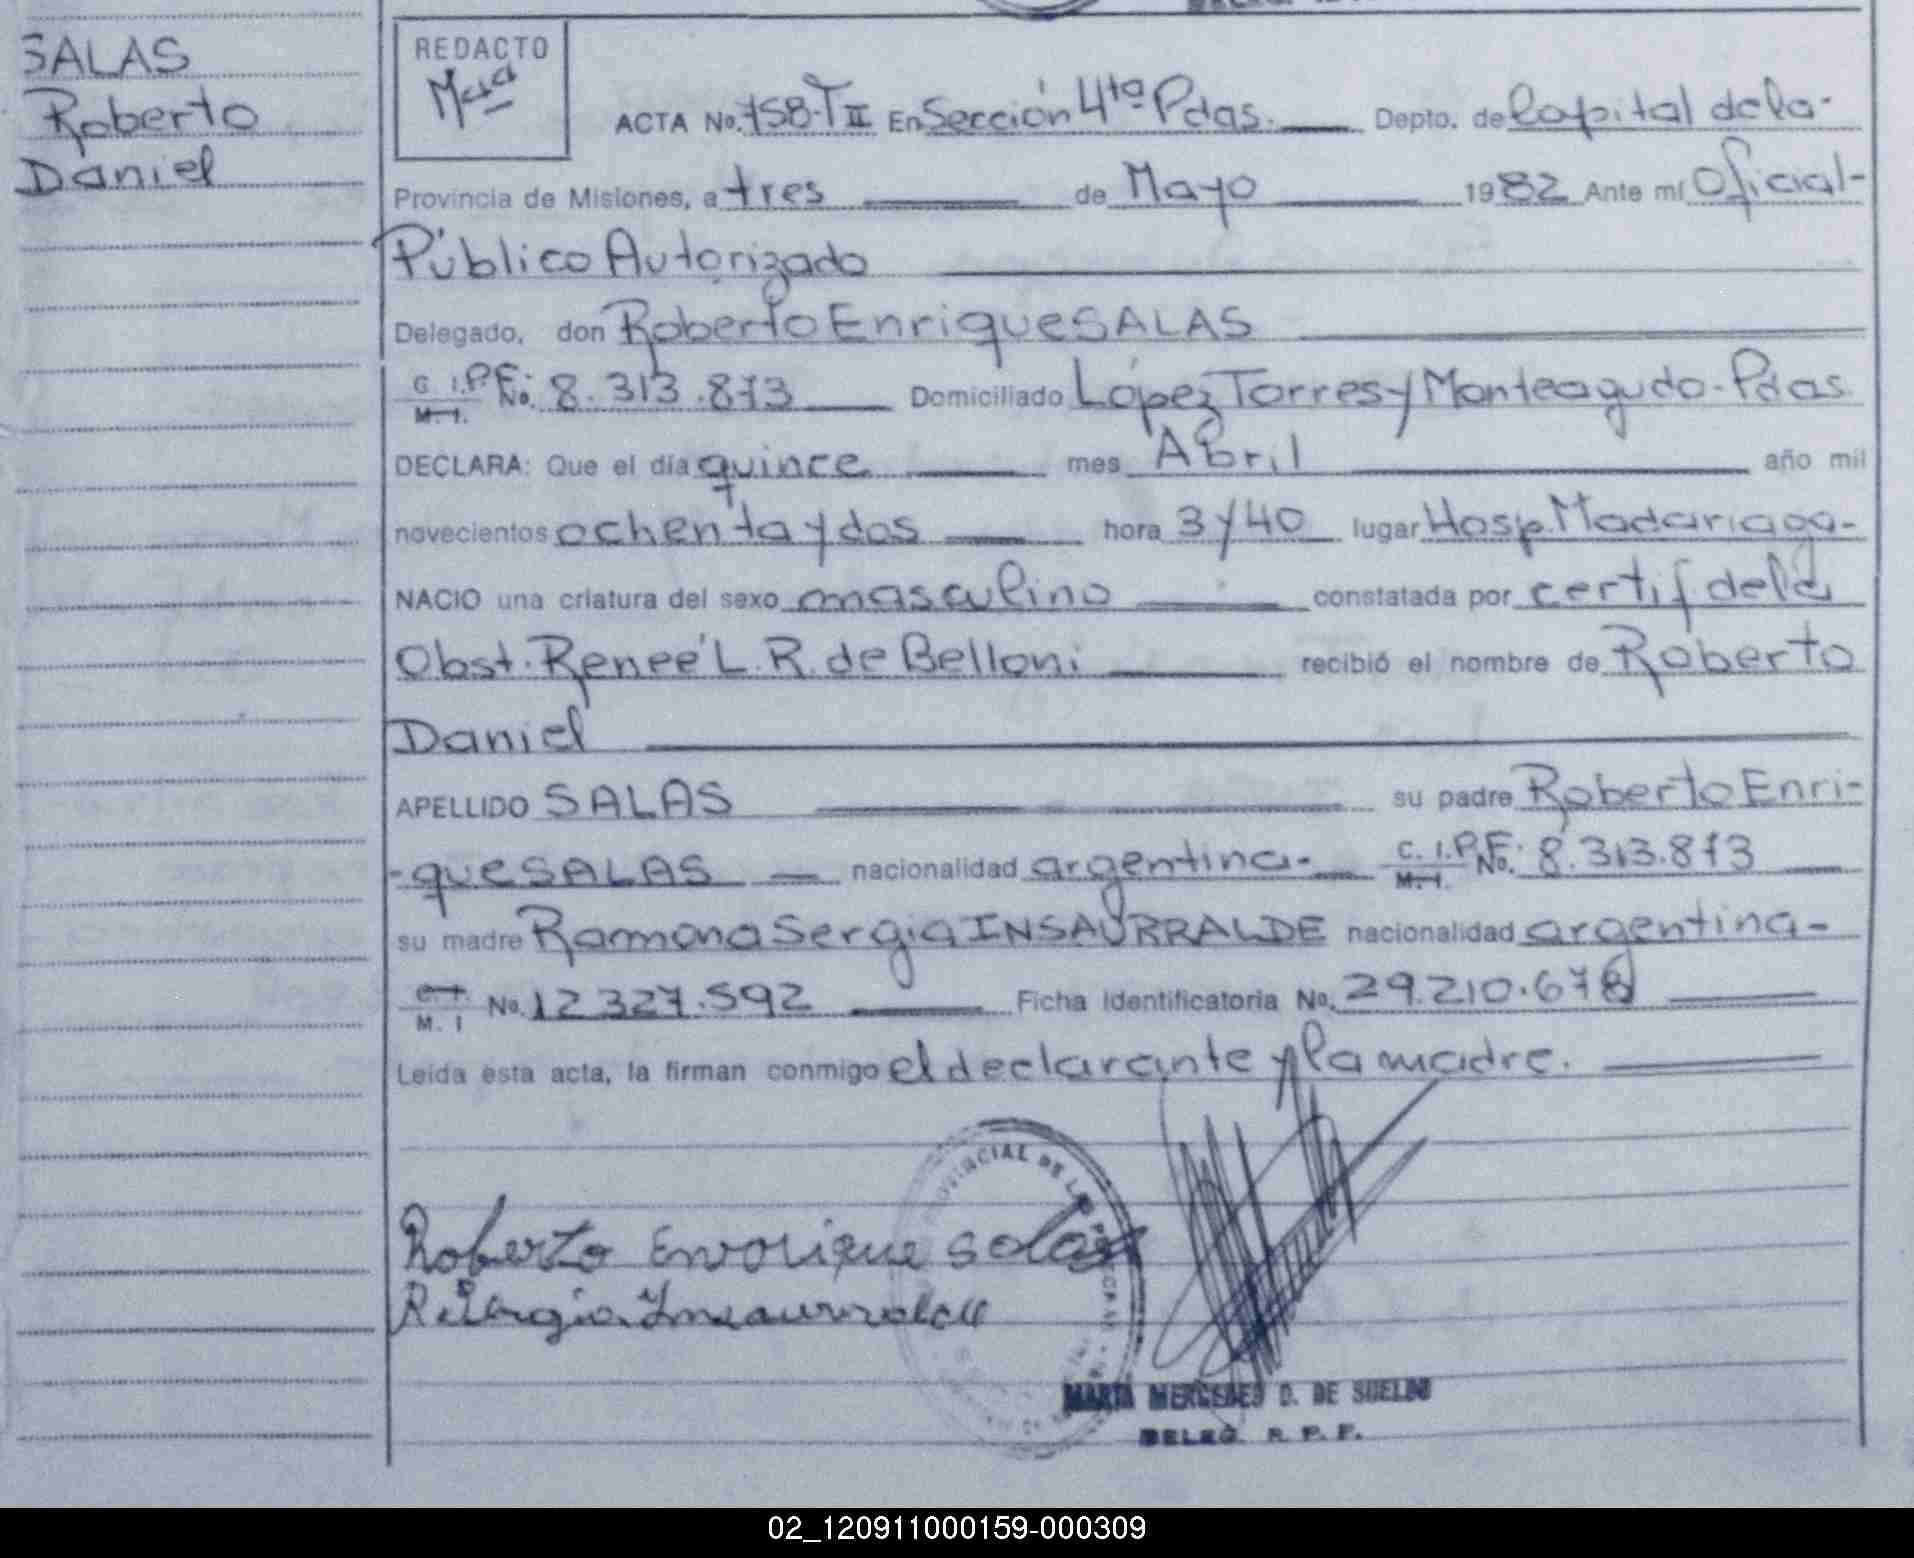 SALAS
Roberto
Daniel
REDACTO
ACTA No. 758-T II En Sección 4ta Pdas. Depto. de Capital de la-
Provincia de Misiones, a tres de Mayo 1982 Ante mí Oficial-
Público Autorizado
Delegado, don Roberto Enrique SALAS
C. I.P.F. No. 8.313.873 Domiciliado López Torres y Monteagudo-Pdas.
M. I.
DECLARA: Que el día quince mes Abril año mil
novecientos ochenta y dos hora 3 y 40 lugar Hosp. Madariaga-
NACIO una criatura del sexo masculino constatada por certif de la
Obst. Reneé L. R. de Belloni recibió el nombre de Roberto
Daniel
APELLIDO SALAS su padre Roberto Enri-
-que SALAS nacionalidad argentina- C. I.P.F. No. 8.313.873
M. I.
su madre Ramona Sergia INSAURRALDE nacionalidad argentina-
C. I. No. 12327.592 Ficha Identificatoria No. 29.210.678
M. I
Leída esta acta, la firman conmigo el declarante y la madre.
PROVINCIAL DE LAS
Roberto Enrique Salas
Insaurralde
MARTA MERCEDES D. DE SUELDO
DELEG. R. P. P.
02_120911000159-000309